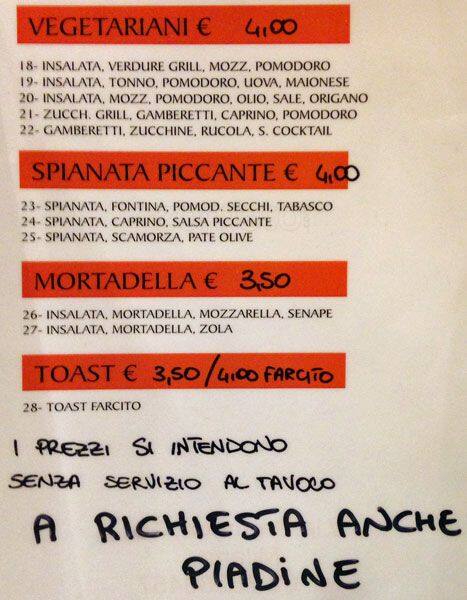 VEGETARIANI € 4,00
18- INSALATA, VERDURE GRILL, MOZZ, POMODORO
19- INSALATA, TONNO, POMODORO, UOVA, MAIONESE
20- INSALATA, MOZZ, POMODORO, OLIO, SALE, ORIGANO
21- ZUCCH. GRILL, GAMBERETTI, CAPRINO, POMODORO
22- GAMBERETTI, ZUCCHINE, RUCOLA, S. COCKTAIL
SPIANATA PICCANTE € 4,00
23- SPIANATA, FONTINA, POMOD. SECCHI, TABASCO
24- SPIANATA, CAPRINO, SALSA PICCANTE
25- SPIANATA, SCAMORZA, PATE OLIVE
MORTADELLA € 3,50
26- INSALATA, MORTADELLA, MOZZARELLA, SENAPE
27- INSALATA, MORTADELLA, ZOLA
TOAST € 3,50/4,00 FARCITO
28- TOAST FARCITO
I PREZZI SI INTENDONO
SENZA SERVIZIO AL TAVOLO
A RICHIESTA ANCHE
PIADINE